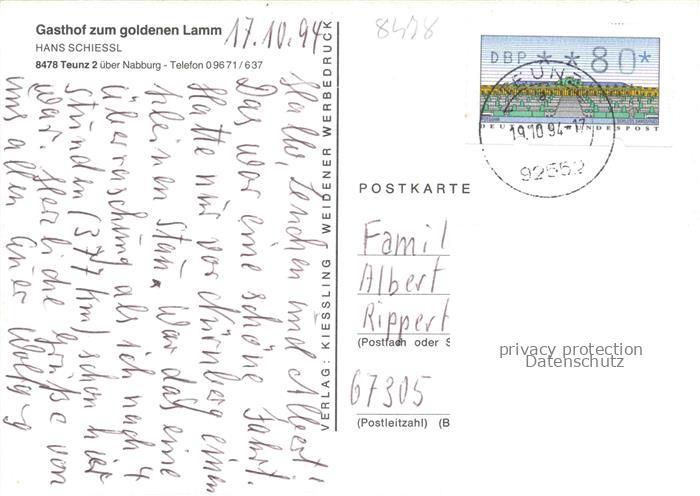 Gasthof zum goldenen Lamm
HANS SCHIESSL
8478 Teunz 2 über Nabburg - Telefon 0 96 71 / 637
17.10.94
Hallo, Lenchen und Albert!
Das war eine schöne Fahrt.
Hatte nur vor Nürnberg einen
kleinen Stau. War das eine
Überraschung als ich nach 4
Stunden (377 km) schon hier
war. Herzliche Grüße von
uns allen Euer Wolfg
VERLAG: KIESSLING WEIDENER WERBEDRUCK
8478
DBP * * 80 *
DEUTSCHE BUNDESPOST
TEUNZ
19.10.94-17
92552
POSTKARTE
Famil
Albert
Rippert
(Postfach oder S
67305
(Postleitzahl) (B
privacy protection
Datenschutz